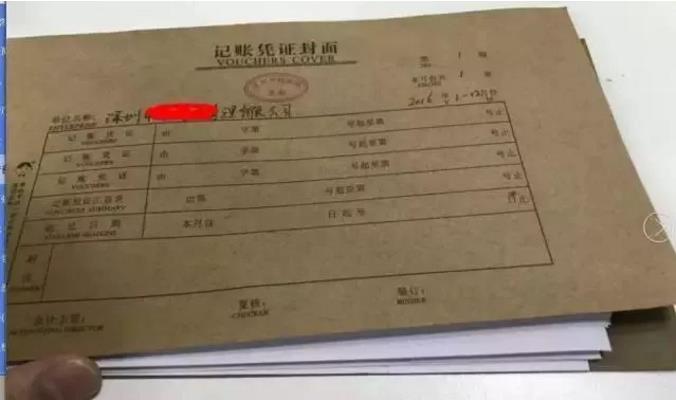 记账凭证封面
VOUCHERS COVER
第 1 册
本月份共 1 册
2016 年 1-12月份
单位名称: 深圳市 管理有限公司
记账凭证 由 字第 号起至第 号止
VOUCHERS
记账凭证 由 字第 号起至第 号止
VOUCHERS
记账凭证 由 字第 号起至第 号止
VOUCHERS
记账凭证汇总表 出第 号起至第 号止
VOUCHERS SUMMARY
日期 本月份 日起号 止
附
注
REMARK
会计主管: 复核: 装订:
ACCOUNTING DIRECTOR CHECKER BINDER